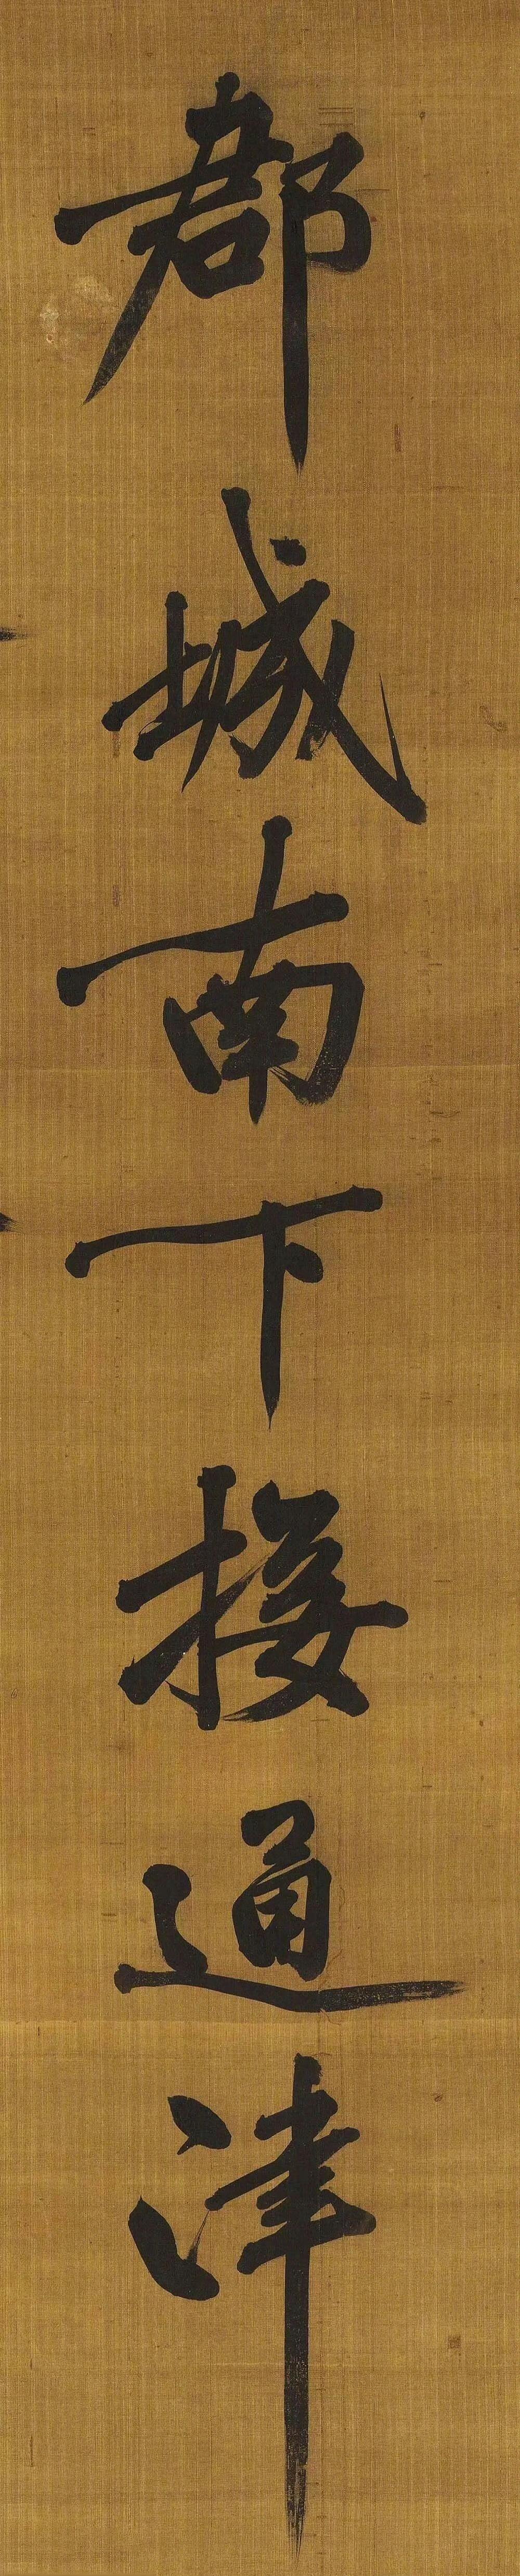 郡城南下接通津